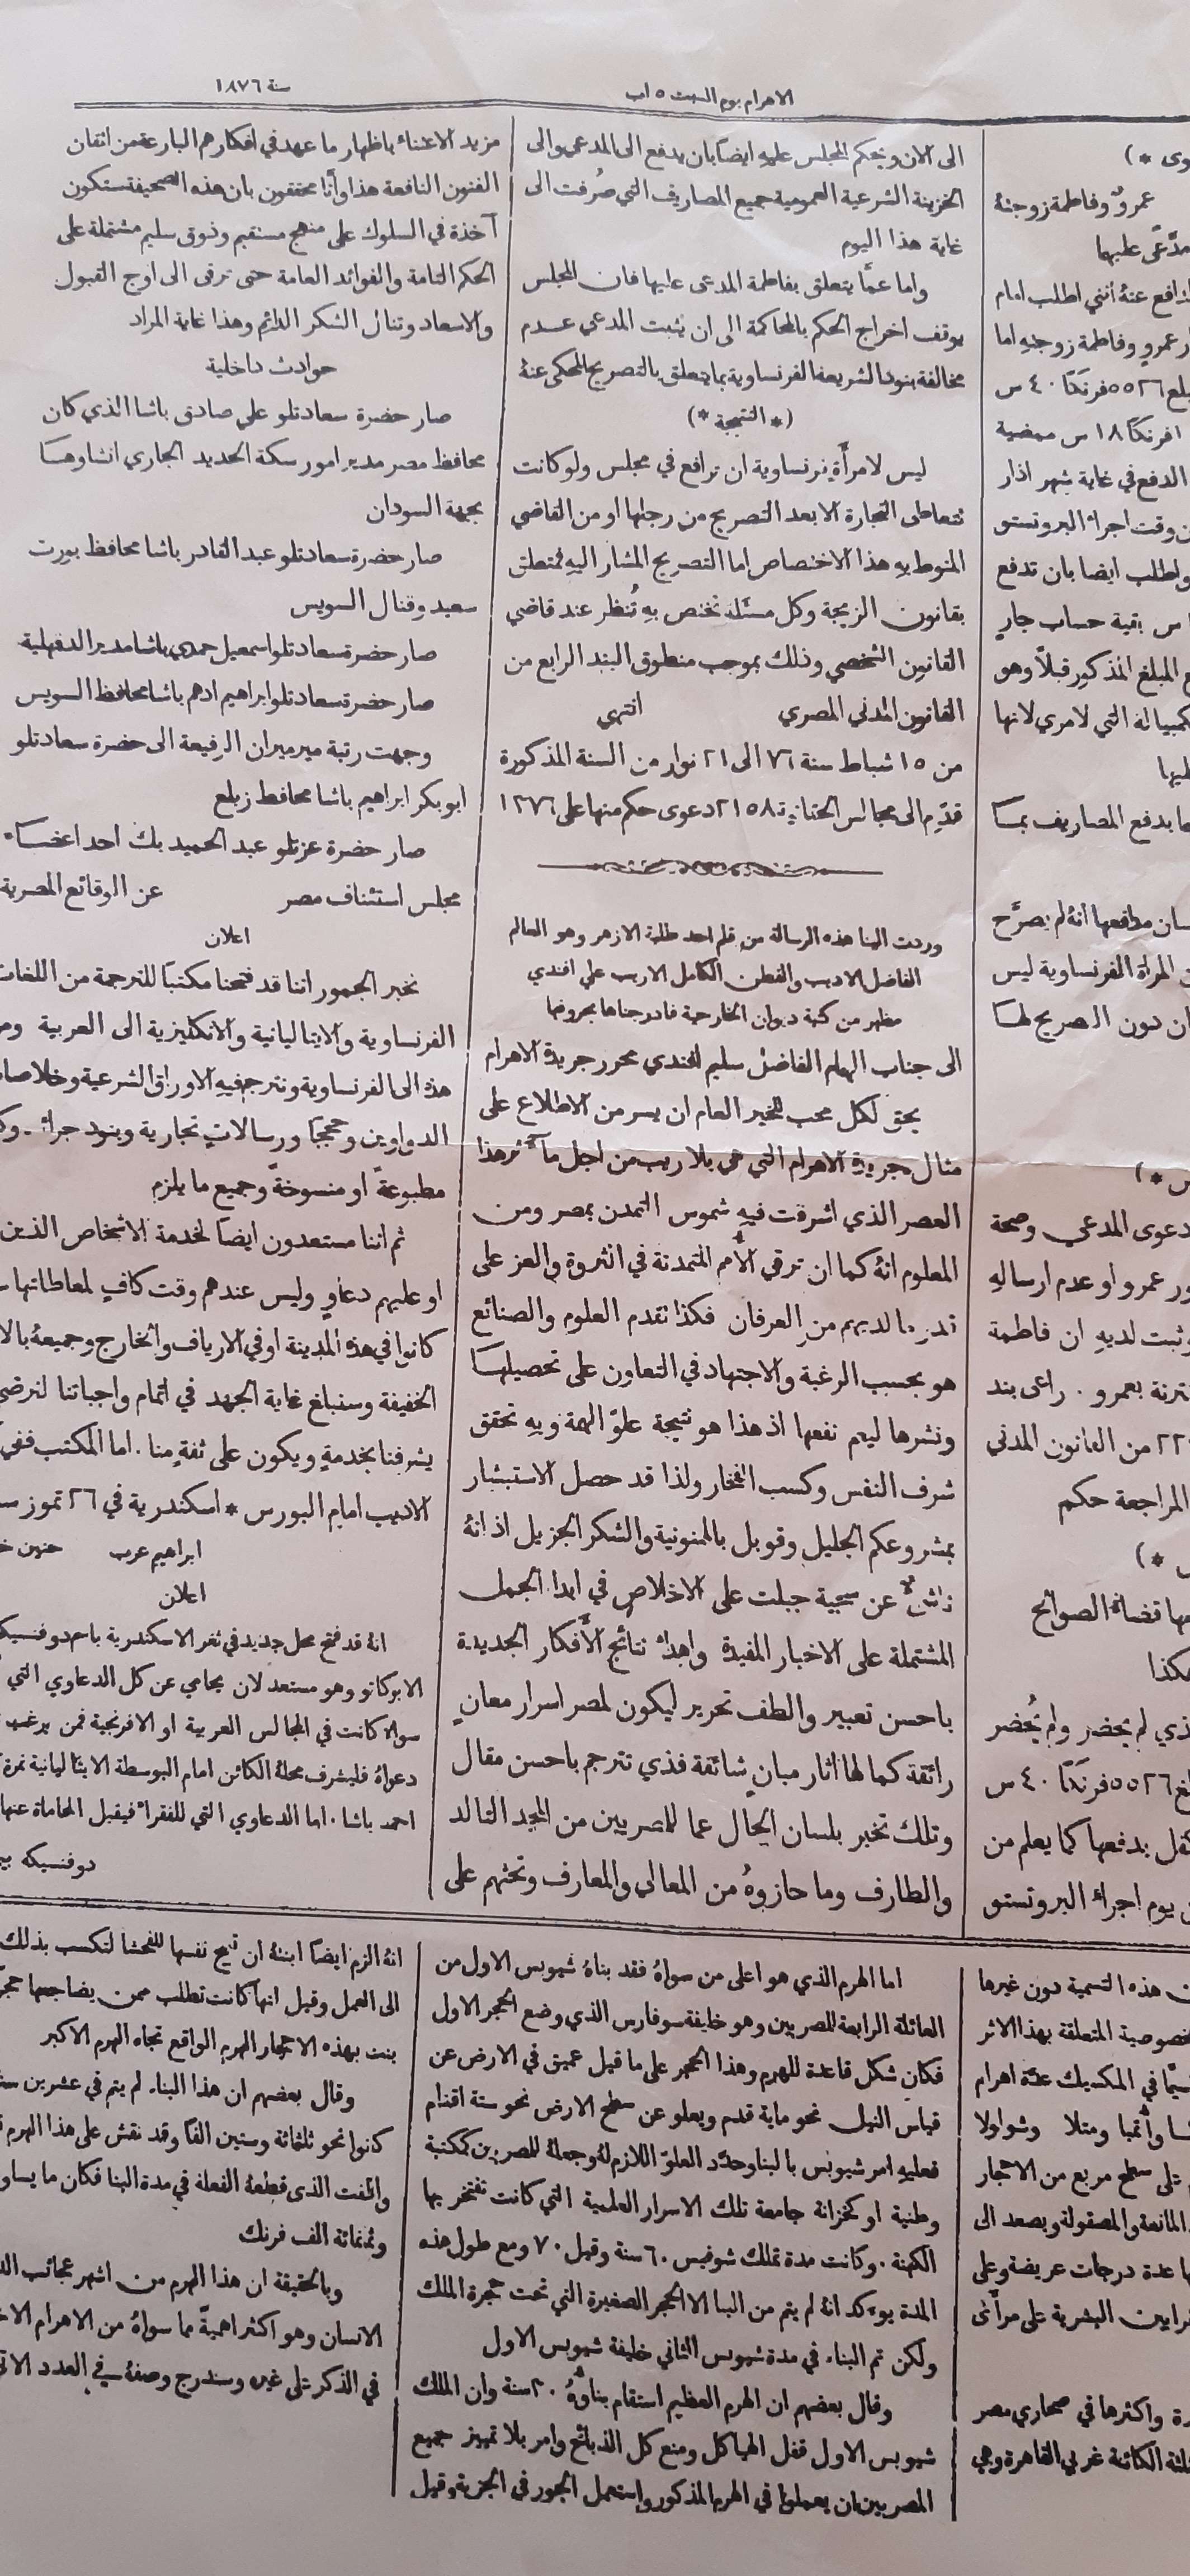 الاهرام يوم السبت ٥ اب
سنة ١٨٧٦
وى *)
عمرو وفاطمة زوجتهُ
مدَّعَى عليها
اننى اطلب امام
ر عمرو وفاطمة زوجهِ اما
بلغ ٥٥٢٦ فرنكًا ٤٠ س
افرنكًا ١٨ س ممضية
الدفع في غاية شهر اذار
ن وقت اجراء البروتستو
واطلب ايضا بان تدفع
س بقية حساب جارٍ
ع المبلغ المذكور قبلاً وهو
كمبيالة التي لامري لانها
ليها
ما بدفع المصاريف بمـا
سان مدافعها انهُ لم يصرَّح
المراة الفرنساوية ليس
ان دون الصريح لهـا
س *)
دعوى المدعي وصحة
ور عمرو او عدم ارسالهِ
وثبت لديهِ ان فاطمة
نترنة بعمرو . راعى بند
من القانون المدني
المراجعة حكم
س *)
ها قضاة الصوائح
هكذا
ذي لم يحضر ولم يُحضر
لغ ٥٥٢٦ فرنكًا ٤٠ س
كفل بدفعها كما يعلم من
ن يوم اجراء البروتستو
الى الان ويحكم المجلس عليهِ ايضًا بان يدفع الى المدعي والى
الخزينة الشرعية العمومية جميع المصاريف التي صُرفت الى
غاية هذا اليوم
واما عمَّا يتعلق بفاطمة المدعى عليها فان المجلس
يوقف اخراج الحكم بالمحاكمة الى ان يثبت المدعي عـدم
مخالفة بنود الشريعة الفرنساوية بما يتعلق بالتصريح المحكى عنهُ
(* النتيجة *)
ليس لامرأَةٍ فرنساوية ان ترافع في مجلس ولو كانت
تتعاطى التجارة الا بعد التصريح من رجلها او من القاضي
المنوط بهِ هذا الاختصاص اما التصريح المشار اليهِ فمتعلق
بقانون الزيجة وكل مسئلة تختص بهِ تُنظر عند قاضي
القانون الشخصي وذلك بموجب منطوق البند الرابع من
القانون المدني المصري انتهي
من ١٥ شباط سنة ٧٦ الى ٢١ نوار من السنة المذكورة
قدّم الى مجالس الحقانية ٢١٥٨ دعوى حكم منها على ١٢٧٦
وردت الينا هذه الرسالة من قلم احد طلبة الازهر وهو العالم
الفاضل الاديب والفطن الكامل الاريب علي افندي
مظهر من كتبة ديوان الخارجية فادرجناها بحروفها
الى جناب الهمام الفاضل سليم افندي محرر جريدة الاهرام
يحق لكل محب للخير العام ان يسر من الاطلاع على
مثال جريدة الاهرام التي هي بلا ريب من اجل مآثر هذا
العصر الذي اشرقت فيهِ شموس التمدن بمصر ومن
المعلوم انهُ كما ان ترقي الأمم المتمدنة في الثروة والعز على
قدر ما لديهم من العرفان فكذا تقدم العلوم والصنائع
هو بحسب الرغبة والاجتهاد في التعاون على تحصيلهـا
ونشرها ليعم نفعها اذ هذا هو نتيجة علوّ الهمة وبهِ تحقق
شرف النفس وكسب الفخار ولذا قد حصل الاستبشار
بمشروعكم الجليل وقوبل بالممنونية والشكر الجزيل اذ انهُ
ناشئ عن سجية جبلت على الاخلاص في ابدا الجمل
المشتملة على الاخبار المفيدة واهداء نتائج الأفكار الجديدة
باحسن تعبير والطف تحرير ليكون لمصر اسرار معانٍ
رائقة كما لها اثار مبانٍ شائقة فذي تترجم باحسن مقال
وتلك تخبر بلسان الحال عما للمصريين من المجد التالد
والطارف وما حازوهُ من المعالي والمعارف وتحثهم على
مزيد الاعتناء باظهار ما عهد في افكارهم البارعة من اتقان
الفنون النافعة هذا وأنا محققون بان هذه الصحيفة ستكون
آخذة في السلوك على منهج مستقيم وذوق سليم مشتملة على
الحكم التامة والفوائد العامة حتى ترقى الى اوج القبول
والاسعاد وتنال الشكر الدائم وهذا غاية المراد
حوادث داخلية
صار حضرة سعادتلو علي صادق باشا الذي كان
محافظ مصر مدير امور سكة الحديد الجاري انشاوهـا
بجهة السودان
صار حضرة سعادتلو عبد القادر باشا محافظ بورت
سعيد وقنال السويس
صار حضرة سعادتلو اسمعيل حمدي باشا مدير الدقهلية
صار حضرة سعادتلو ابراهيم ادهم باشا محافظ السويس
وجهت رتبة ميرميران الرفيعة الى حضرة سعادتلو
ابو بكر ابراهيم باشا محافظ زيلع
صار حضرة عزتلو عبد الحميد بك احد اعضـاء
مجلس استئناف مصر عن الوقائع المصرية
اعلان
نخبر الجمهور اننا قد فتحنا مكتبًا للترجمة من اللغات
الفرنساوية والايتاليانية والانكليزية الى العربية ومن
هذه الى الفرنساوية ونترجم فيهِ الاوراق الشرعية وخلاصات
الدواوين وحججًا ورسالات تجارية وبنود جرائد
مطبوعةً او منسوخةً وجميع ما يلزم
ثم اننا مستعدون ايضًا لخدمة الاشخاص الذـين
او عليهم دعاوٍ وليس عندهم وقت كافٍ لمعاطاتها
كانوا في هذه المدينة او في الارياف والخارج وجميعهُ
الخفيفة وسنبلغ غاية الجهد في اتمام واجباتنا
يشرفنا بخدمةٍ ويكون على ثقةٍ منا . اما المكتب ففي
الاديب امام البورس * اسكندرية في ٢٦ تموز
ابراهيم عرب حنين
اعلان
انهُ قد فتح محل جديد في ثغر الاسكندرية باسم دوفنسيكه
الابوكاتو وهو مستعد لان يحامي عن كل الدعاوي التي
سواء كانت في المجالس العربية او الافرنجية فمن يرغب
دعواهُ فليشرف محلهُ الكائن امام البوسطة الايتاليانية نمرة
احمد باشا . اما الدعاوي التي للفقراء فيقبل المحاماة عنها
دوفنسيكه
ن هذه التسمية دون غيرها
لخصوصية المتعلقة بهذا الاثر
سيمَّا في المكسيك عدَّة اهرام
ومتلا وشولولا
على سطح مربع من الاحجار
المانعة والمصقولة ويصعد الى
ها عدة درجات عريضة وعلى
قرابين البشرية على مرأى
رة واكثرها في صحاري مصر
ثلثة الكائنة غربي القاهرة وهي
اما الهرم الذي هو اعلى من سواهُ فقد بناهُ شيوبس الاول من
العائلة الرابعة للمصريين وهو خليفة سوفارس الذي وضع الحجر الاول
فكان شكل قاعدة للهرم وهذا الحجر على ما قيل عميق في الارض عن
قياس النيل نحو ماية قدم ويعلو عن سطح الارض نحو ستة اقدام
فعليهِ امر شيوبس بالبنا وحدَّد العلوّ اللازم لهُ وجعلهُ للمصريين كمكتبة
وطنية او كخزانة جامعة تلك الاسرار العلمية التي كانت تفتخر بها
الكهنة . وكانت مدة تملك شوفيس ٦٠ سنة وقيل ٧٠ ومع طول هذه
المدة يوَكد انهُ لم يتم من البنا الا الحجر الصغيرة التي تحت حجرة الملك
ولكن تم البناء في مدة شيوبس الثاني خليفة شيوبس الاول
وقال بعضهم ان الهرم العظيم استقام بناوُهُ ٢٠ سنة وان الملك
شيوبس الاول قفل الهياكل ومنع كل الذبائح وامر بلا تمييز جميع
المصريين ان يعملوا في الهرم المذكور واستعمل الجور في الجزية وقيل
انهُ الزم ايضًا ابنتهُ ان تبيح نفسها للفحشا لتكسب بذلك
الى العمل وقيل انها كانت تطلب ممن يضاجعها حجرًا
بنت بهذه الاحجار الهرم الواقع تجاه الهرم الاكبر
وقال بعضهم ان هذا البناء لم يتم في عشرين سنة
كانوا نحو ثلثمائة وستين الفًا وقد نقش على هذا الهرم
واللفت الذى قطعهُ الفعلة في مدة البنا فكان ما يساوي
وثمنمائة الف فرنك
وبالحقيقة ان هذا الهرم من اشهر عجائب
الانسان وهو اكثر اهميةً مما سواهُ من الاهرام
في الذكر على غيرهِ وسندرج وصفهُ في العدد الاتي